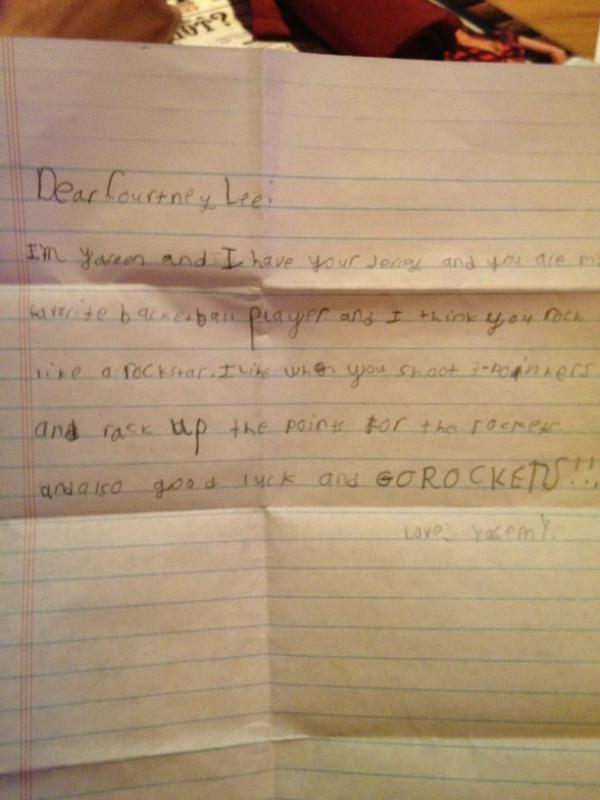 HOT?
Dear Courtney Lee:
I'm Yaseen and I have your Jersey and you are my
favorite basketball player and I think you rock
like a rockstar. I like when you shoot 3-pointers
and rack up the points for the rockets
and also good luck and GO ROCKETS!!!
Love: Yaseen Y.